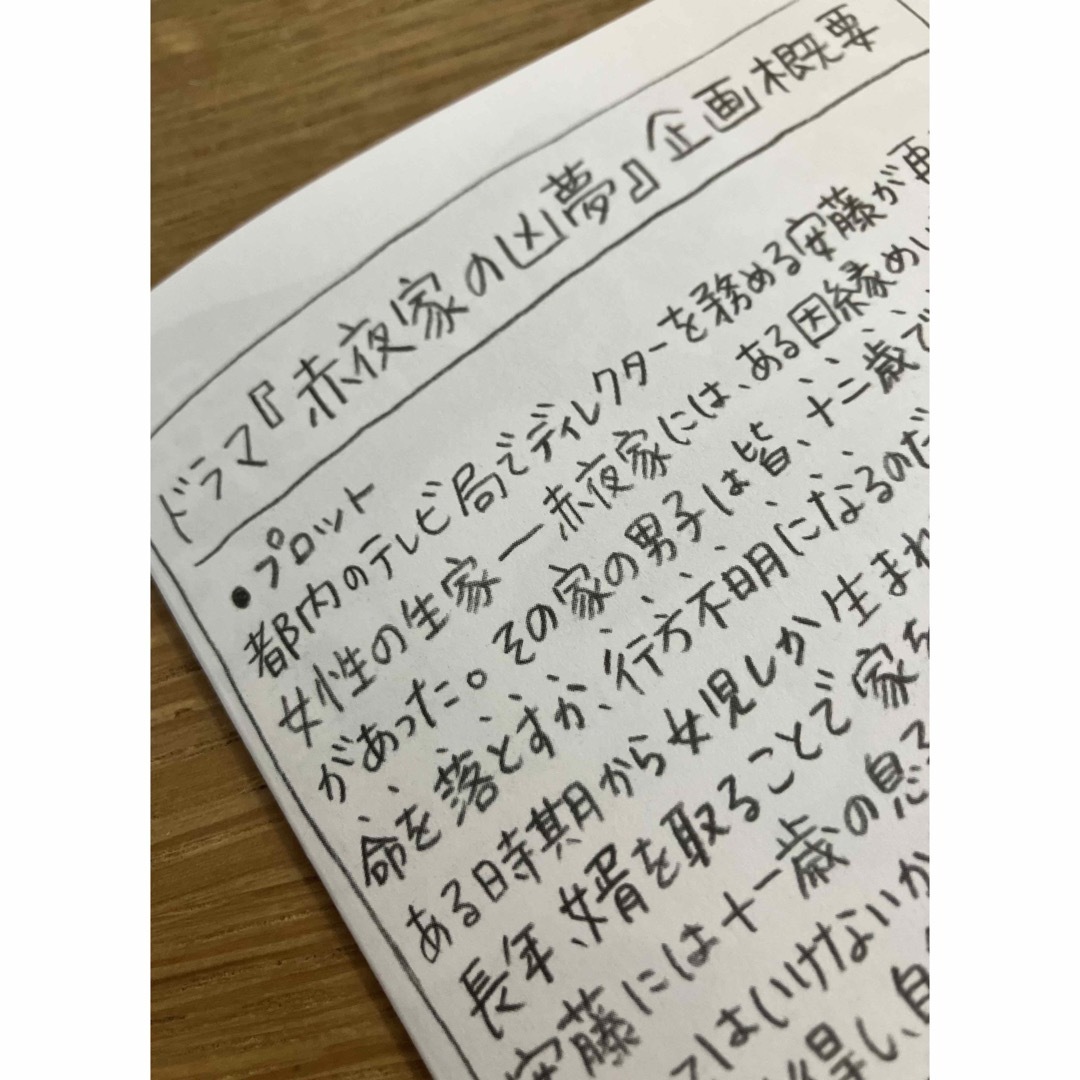 ドラマ『赤夜家の凶夢』企画概要
・プロット
都内のテレビ局でディレクターを務める安藤が再
女性の生家―赤夜家には、ある因縁めい
があった。その家の男子は皆、十二歳で
命を落とすか、行方不明になるのだ
ある時期から女児しか生まれ
長年、婿を取ることで家を
安藤には十一歳の息子
てはいけないか
得し、自